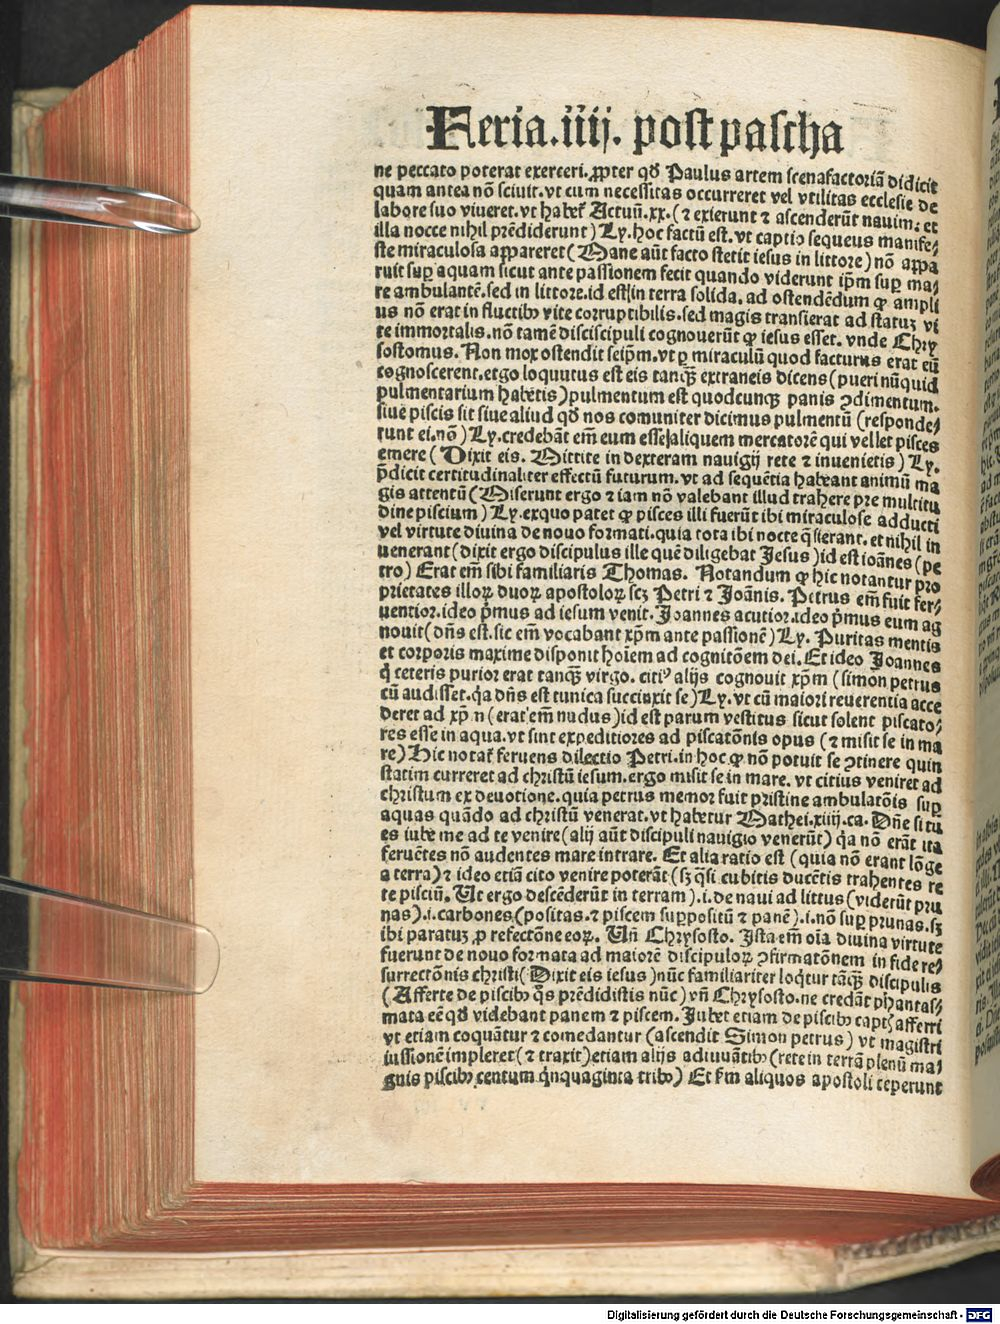 Feria.iiij. post pascha
ne peccato poterat exerceri. ꝓpter qđ Paulus artem scenafactoriā didicit
quam antea nō sciuit. vt cum necessitas occurreret vel vtilitas ecclesie de
labore suo viueret. vt habet᷑ Actuū.xx. (⁊ exierunt ⁊ ascenderūt nauim: et
illa nocce nihil prēdiderunt) Ly. hoc factū est. vt captio sequeus manife⸗
ste miraculosa appareret (Mane aūt facto stetit iesus in littore) nō appa
ruit suꝑ aquam sicut ante passionem fecit quando viderunt ip̄m suꝑ ma⸗
re ambulantē. sed in littore. id est in terra solida. ad ostendēdum ꝙ ampli
us nō erat in fluctibꝰ vite corruptibilis. sed magis transierat ad statuꝫ vi
te immortalis. nō tamē disciscipuli cognouerūt ꝙ iesus esset. vnde Chry
sostomus. Non mox ostendit seip̄m. vt ꝑ miraculū quod facturus erat eū
cognoscerent. ergo loquutus est eis tanqꝫ̄ extraneis dicens (pueri nūquid
pulmentarium habetis) pulmentum est quodcunqꝫ panis ꝯdimentum.
siue piscis sit siue aliud qđ nos comuniter dicimus pulmentū (responde⸗
runt ei. nō) Ly. credebāt em̄ eum esse aliquem mercatorē qui vellet pisces
emere (Dixit eis. Mittite in dexteram nauigij rete ⁊ inuenietis) Ly.
p̄dicit certitudinaliter effectū futurum. vt ad sequētia habeant animū ma
gis attentū (Miserunt ergo ⁊ iam nō valebant illud trahere pre multitu
dine piscium) Ly. exquo patet ꝙ pisces illi fuerūt ibi miraculose adducti
vel virtute diuina de nouo formati. quia tota ibi nocte q̄sierant. et nihil in
uenerant (dixit ergo discipulus ille quē diligebat Jesus) id est ioānes (pe
tro) Erat em̄ sibi familiaris Thomas. Notandum ꝙ hic notantur pro
prietates illoꝝ duoꝝ apostoloꝝ scꝫ Petri ⁊ Joānis. Petrus em̄ fuit fer⸗
uentior. ideo p̄mus ad iesum venit. Joannes acutior. ideo p̄mus eum ag
nouit (dn̄s est. sic em̄ vocabant xp̄m ante passionē) Ly. Puritas mentis
et corporis maxime disponit hoīem ad cognitōem dei. Et ideo Joannes
q̇ ceteris purior erat tanqꝫ̄ virgo. citiꝰ alijs cognouit xp̄m (simon petrus
cū audisset. q̇a dn̄s est tunica succinxit se) Ly. vt cū maiori reuerentia acce
deret ad xp̄m (erat em̄ nudus) id est parum vestitus sicut solent piscato⸗
res esse in aqua. vt sint expeditiores ad piscatōnis opus (⁊ misit se in ma
re) Hic notat᷑ feruens dilectio Petri. in hoc ꝙ nō potuit se ꝯtinere quin
statim curreret ad christū iesum. ergo misit se in mare. vt citius veniret ad
christum ex deuotione. quia petrus memor fuit pristine ambulatōis suꝑ
aquas quādo ad christū venerat. vt habetur Mathei. xiiij. ca. Dn̄e si tu
es iube me ad te venire (alij aūt discipuli nauigio venerūt) q̇a nō erāt ita
feruētes nō audentes mare intrare. Et alia ratio est (quia nō erant lōge
a terra) ⁊ ideo etiā cito venire poterāt (sꝫ q̄si cubitis ducētis trahentes re
te pisciū. Ut ergo descēderūt in terram) .i. de naui ad littus (viderūt pru
nas) .i. carbones (positas. ⁊ piscem suppositū ⁊ panē) .i. nō suꝑ prunas. sꝫ
ibi paratuꝫ ꝓ refectōne eoꝝ. Un̄ Chrysosto. Ista em̄ oīa diuina virtute
fuerunt de nouo formata ad maiorē discipuloꝝ ꝯfirmatōnem in fide re⸗
surrectōnis christi (Dixit eis iesus) nūc familiariter loq̇tur tāqꝫ̄ discipulis
(Afferte de piscibꝰ q̄s prēdidistis nūc) vn̄ Chrysosto. ne credāt phantas⸗
mata eē qđ videbant panem ⁊ piscem. Jubet etiam de piscibꝰ captꝭ afferri
vt etiam coquātur ⁊ comedantur (ascendit Simon petrus) vt magistri
iussionē impleret (⁊ traxit) etiam alijs adiuuātibꝰ (rete in terrā plenū ma⸗
gnis piscibꝰ centum q̇nquaginta tribꝰ) Et s̄m aliquos apostoli ceperunt
Digitalisierung gefördert durch die Deutsche Forschungsgemeinschaft - DFG